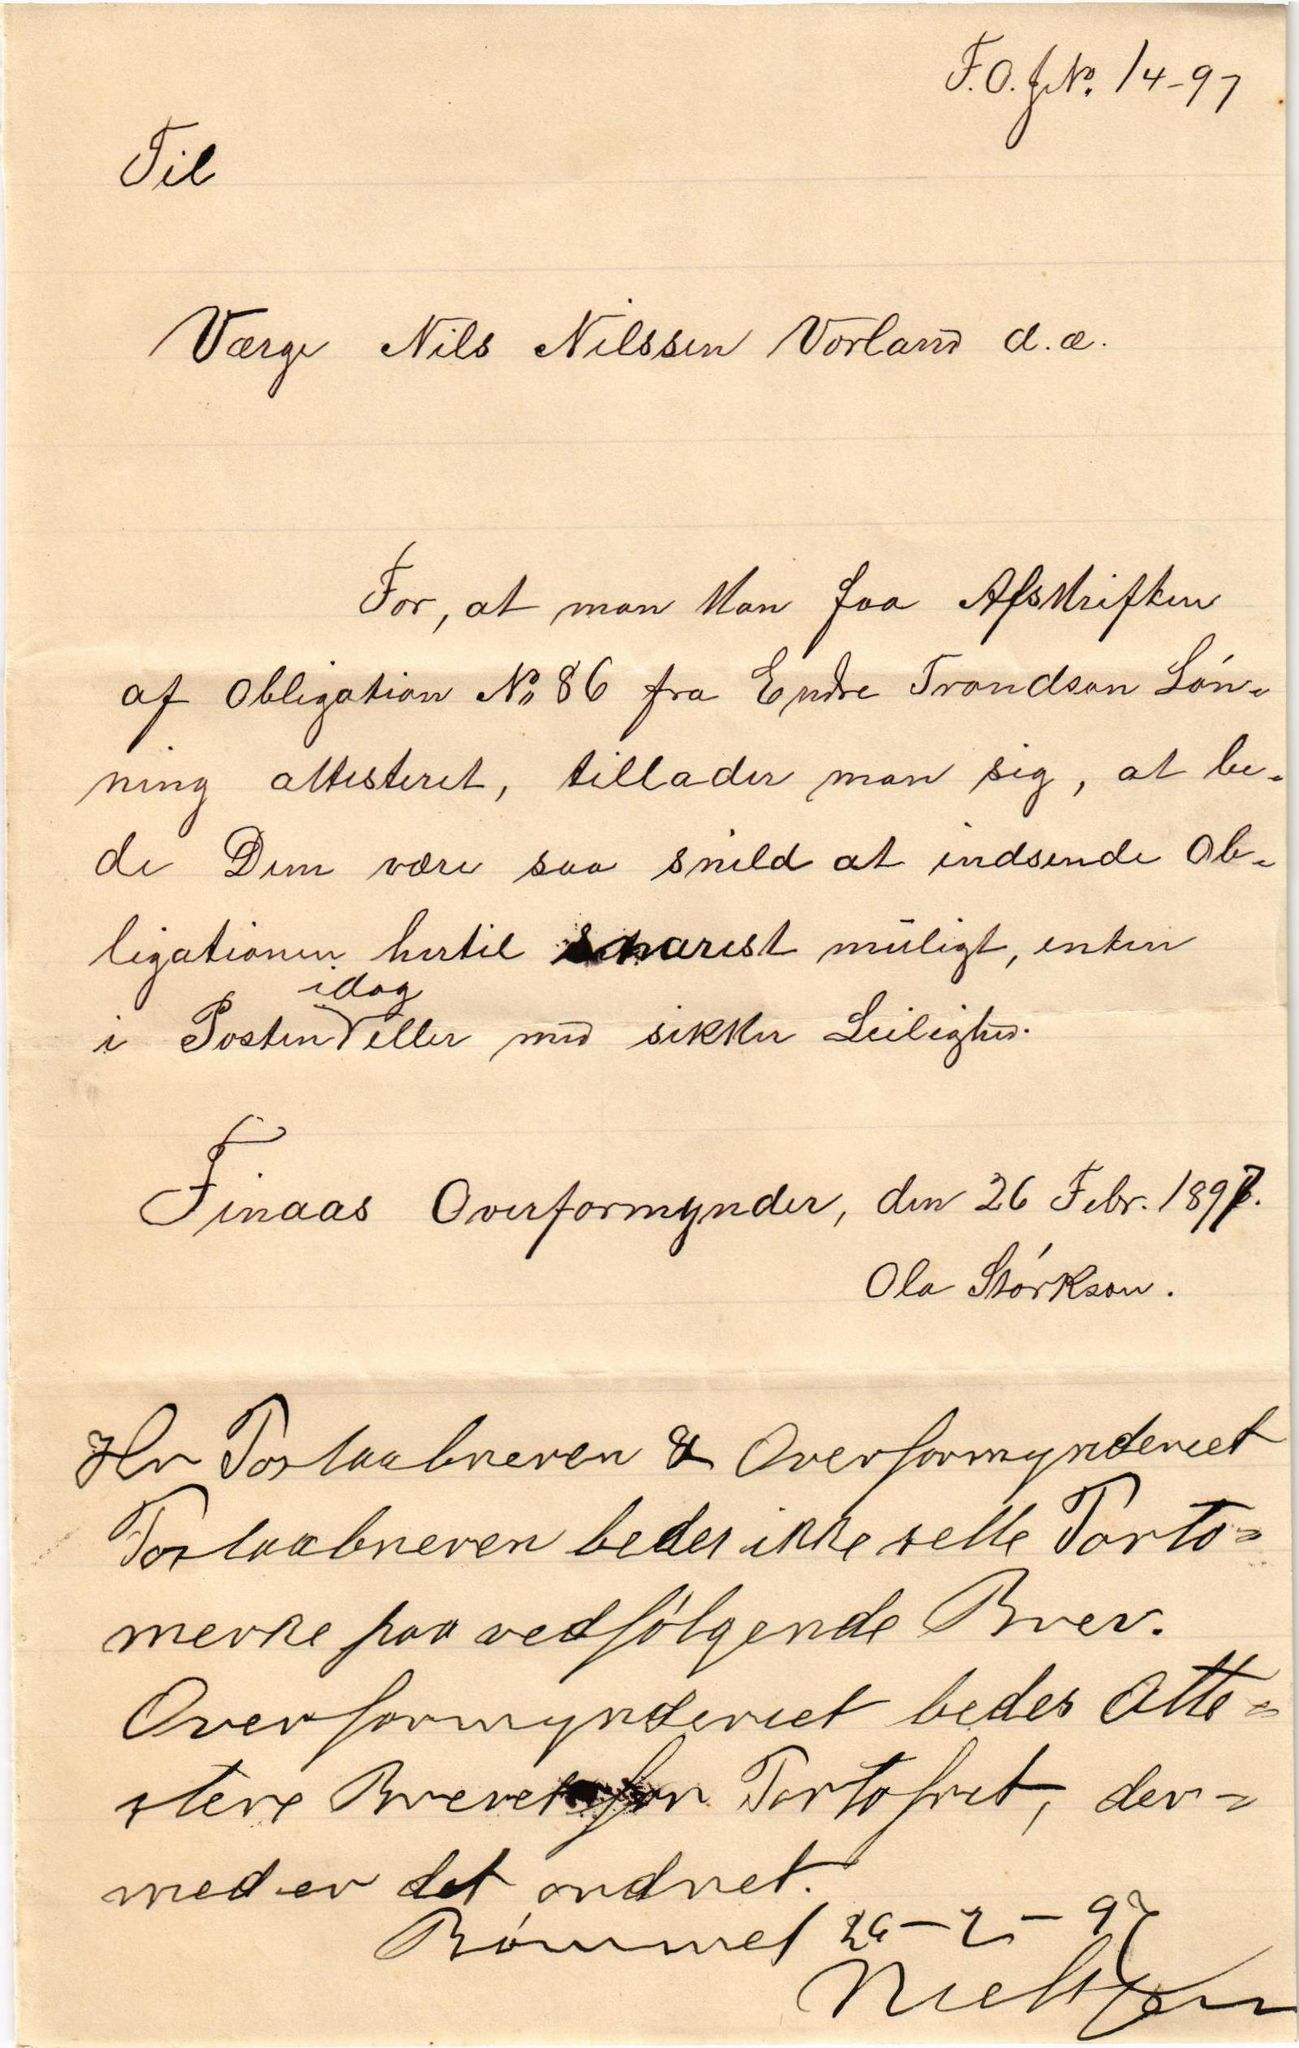 F.O.J.No. 14-97
Til
Værge Nils Nilssen Vorland d.æ.
For, at man kan faa Afskriften
af Obligation No 86 fra Endre Trondson Løn-
ning attesteret, tillader man sig, at be-
de Dem være saa snild at indsende Ob-
ligationen hertil snarest müligt, enten
idag
i Posten eller med sikker Leilighed.
Finaas Overformynder, den 26 Febr. 1897.
Ola Størkson.
Hr Postaabneren & Overformynderiet
Postaabneren bedes ikke sette Porto-
merke paa vedfølgende Brev.
Overformynderiet bedes Atte-
stere Brevet for Portofrit, der-
med er det ordnet.
Bømmel 26-2-97